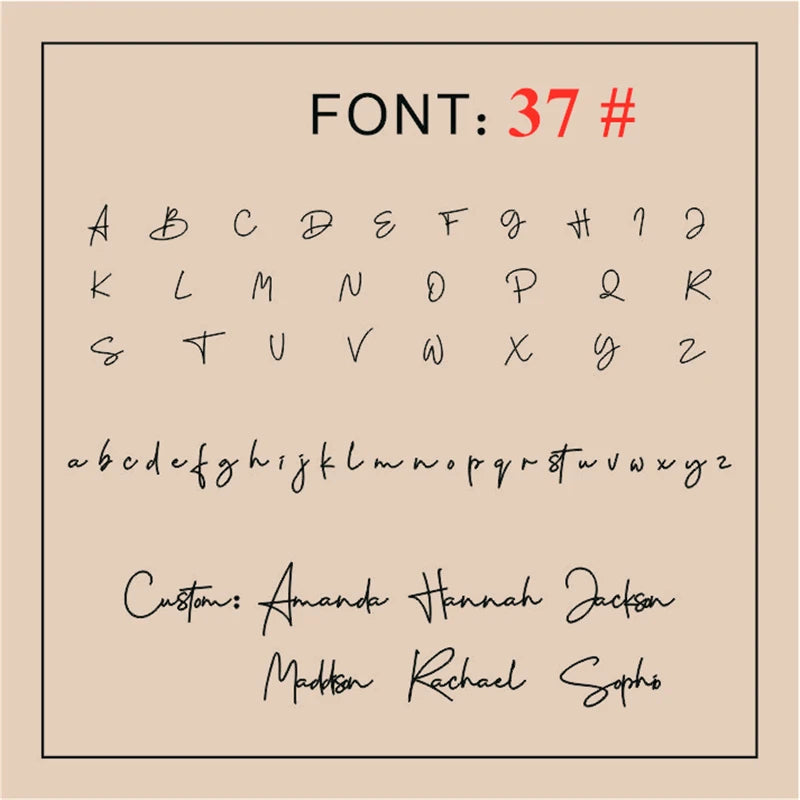 FONT: 37 #
A B C D E F G H I J
K L M N O P Q R
S T U V W X Y Z
a b c d e f g h i j k l m n o p q r s t u v w x y z
Custom: Amanda Hannah Jackson
Maddison Rachael Sophio